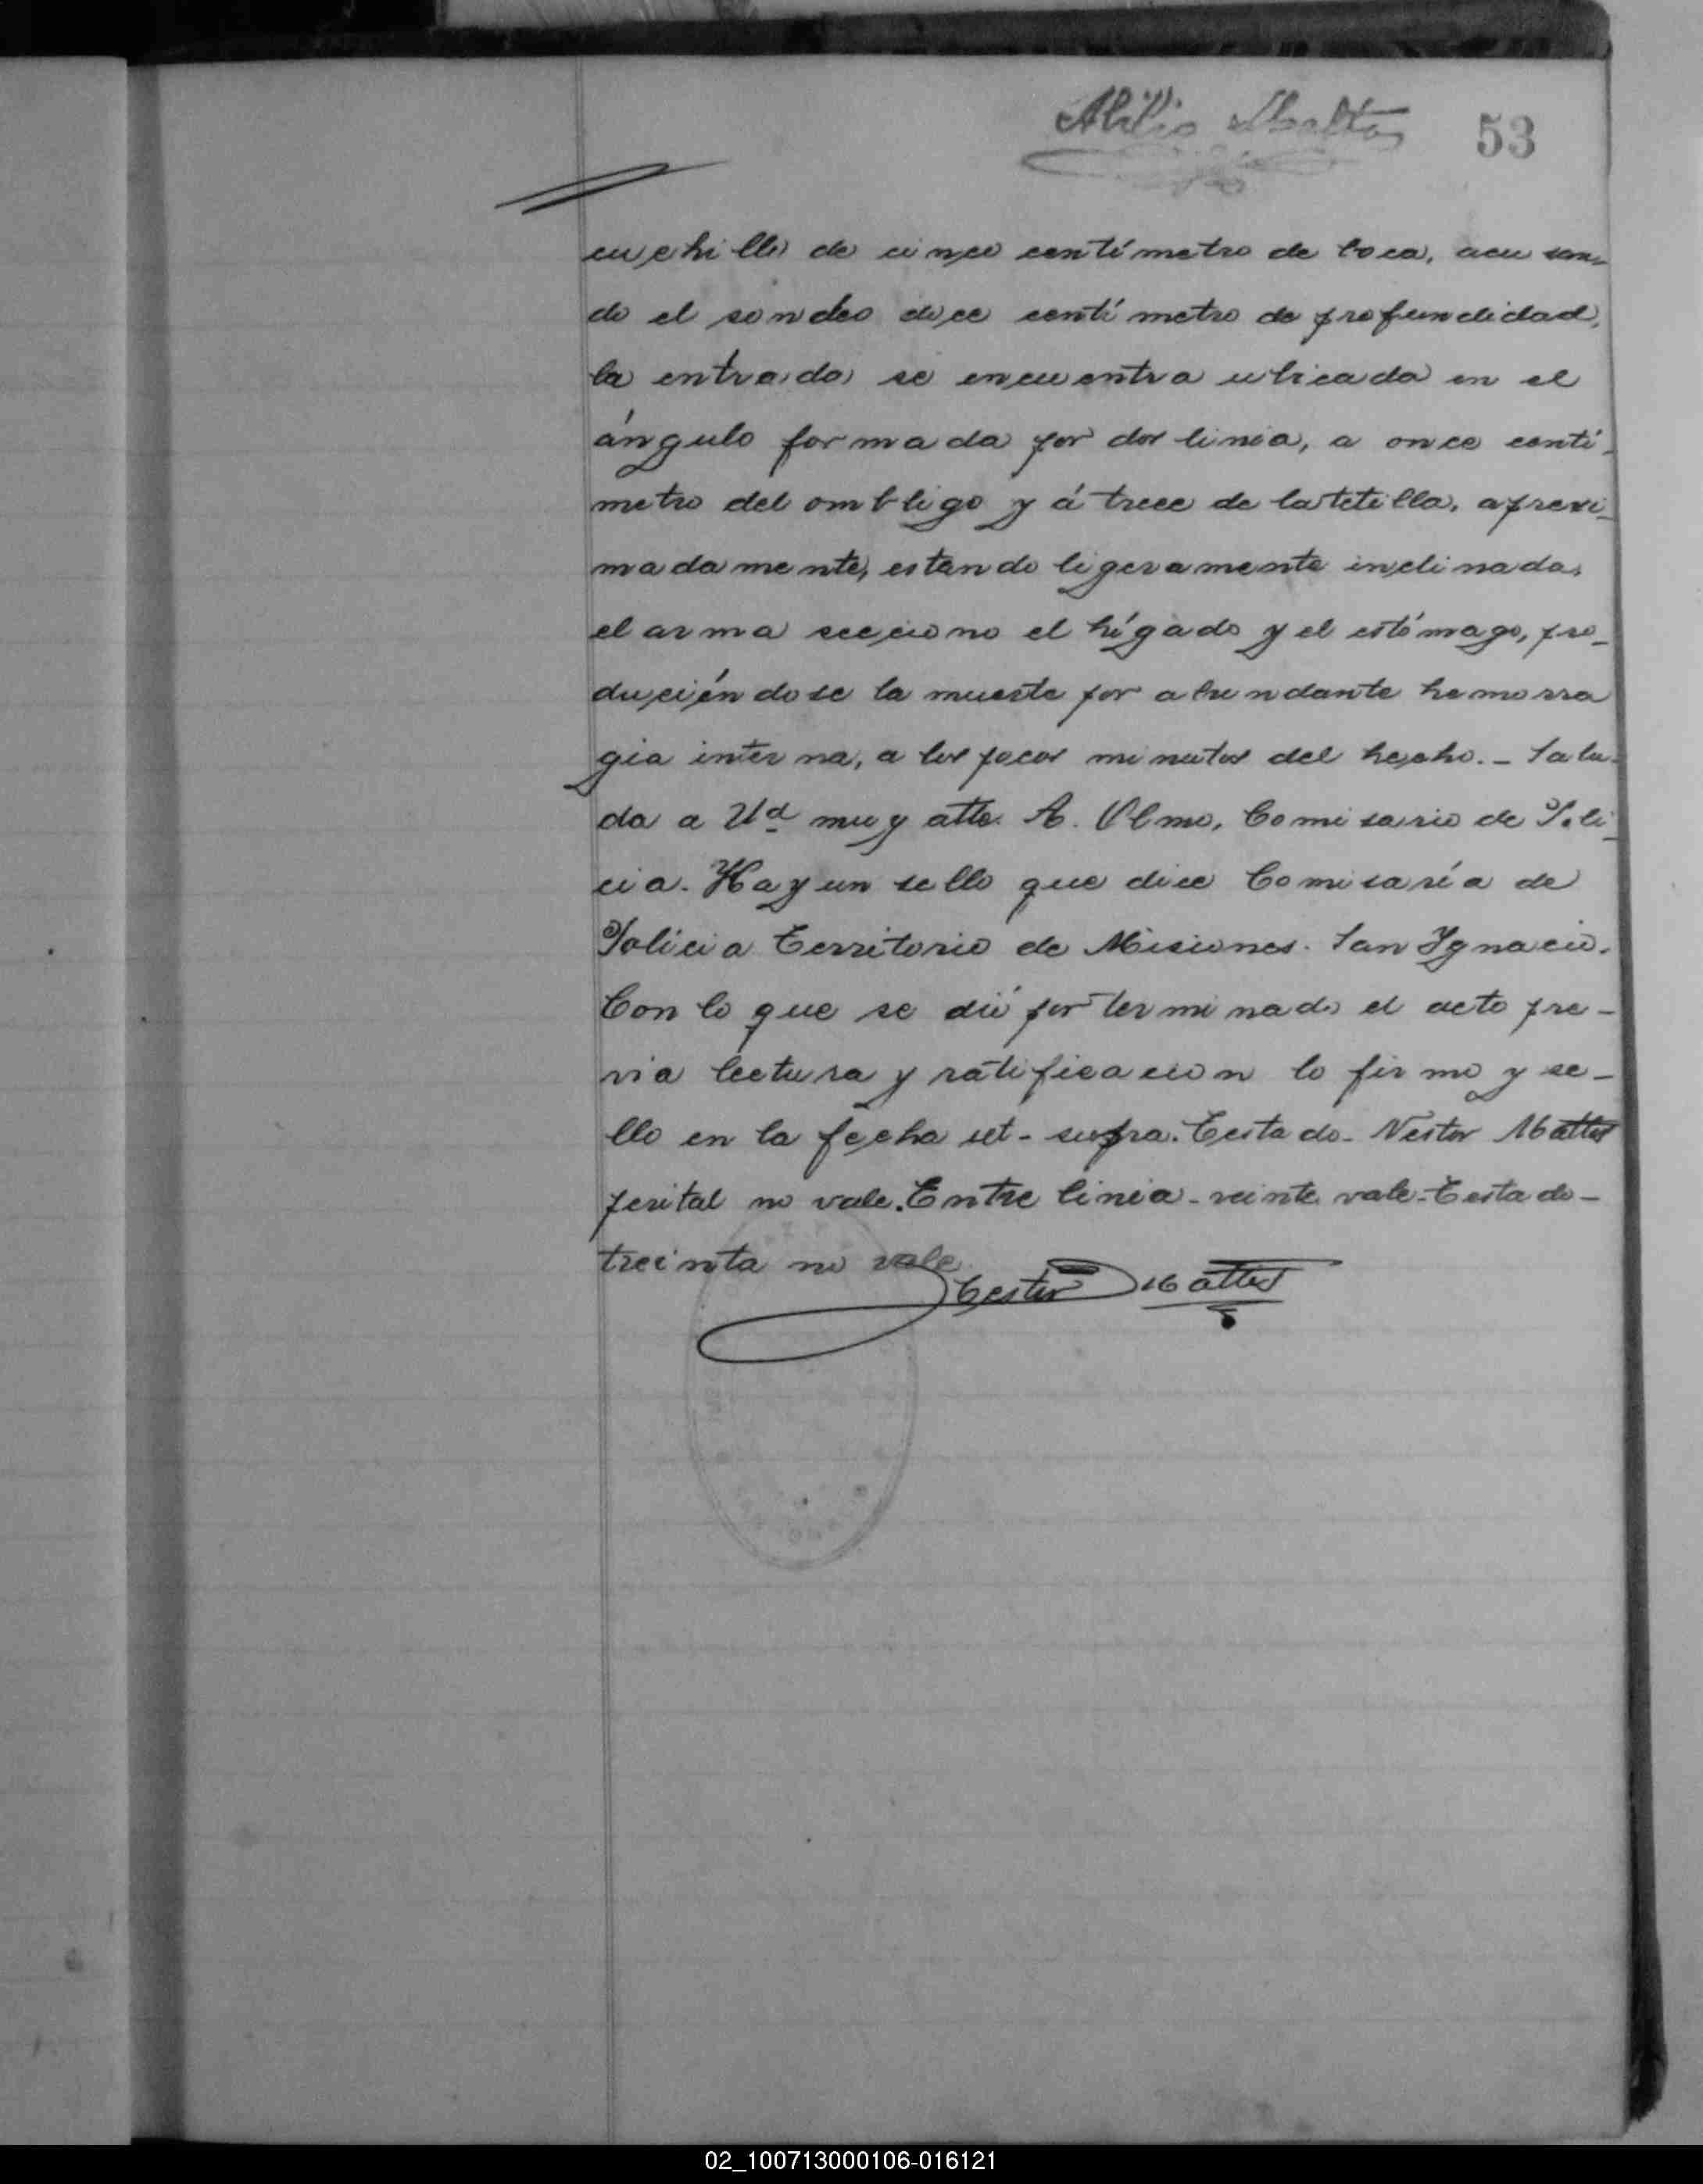 Abilio
53
cuchillo de cinco centímetro de boca, acusan-
do el sondeo doce centímetro de profundidad,
la entrada se encuentra ubicada en el
ángulo formada por dos linea, a once centí-
metro del ombligo y á trece de la tetilla, aproxi-
madamente, estando ligeramente inclinada,
el arma secciono el hígado y el estómago, pro-
duciéndose la muerte por abundante hemorra
gia interna, a los pocos minutos del hecho. - Salu-
da a Ud muy atto. A. Olmo, Comisario de Poli-
cia. Hay un sello que dice Comisaría de
Policia Territorio de Misiones. San Ygnacio.
Con lo que se dió por terminado el acto pre-
via lectura y ratificacion lo firmo y se-
llo en la fecha ut-supra. Testado - Nestor Mattos
perital no vale. Entre linea - veinte vale - Testado -
treinta no vale.
Nestor Mattos
02_100713000106-016121